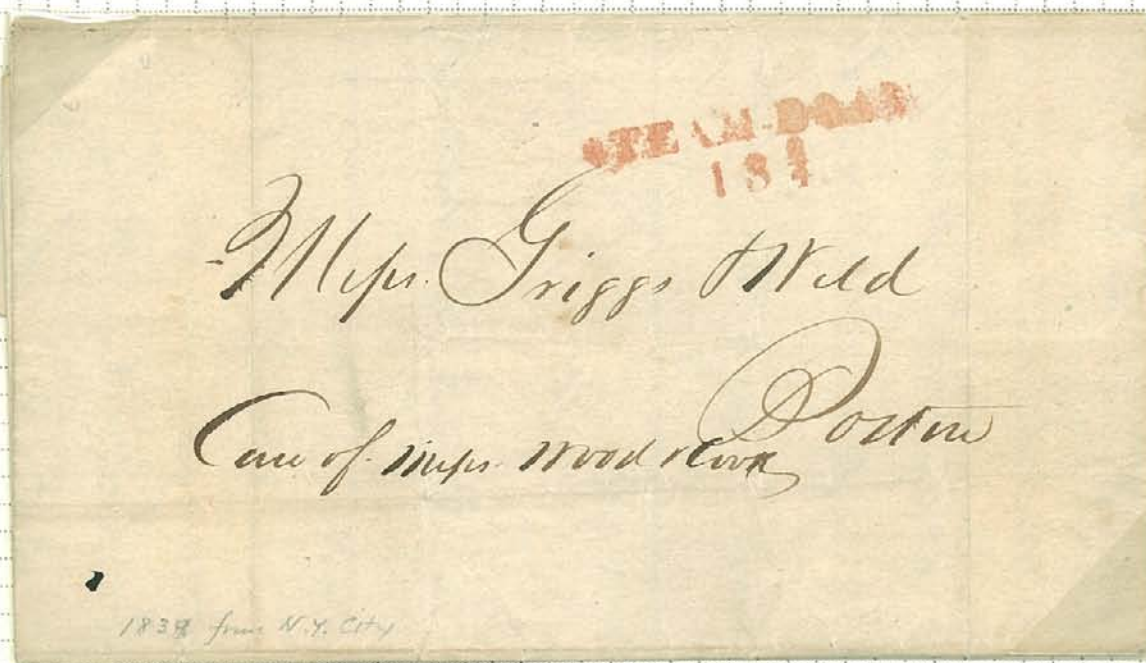 STEAM-BOAT
18¾
Messrs. Griggs & Weld
Boston
Care of Messrs. Wood & Cook
from N.Y. City